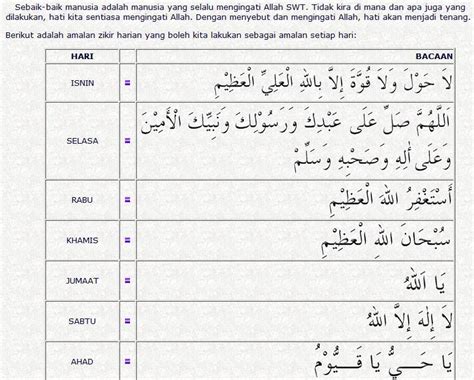 Sebaik-baik manusia adalah manusia yang selalu mengingati Allah SWT. Tidak kira di mana dan apa juga yang
dilakukan, hati kita sentiasa mengingati Allah. Dengan menyebut dan mengingati Allah, hati akan menjadi tenang.
Berikut adalah amalan zikir harian yang boleh kita lakukan sebagai amalan setiap hari:
HARI BACAAN
ISNIN = لَا حَوْلَ وَلَا قُوَّةَ إِلَّا بِاللهِ الْعَلِيِّ الْعَظِيْمِ
SELASA = اَللَّهُمَّ صَلِّ عَلَى عَبْدِكَ وَرَسُوْلِكَ وَنَبِيِّكَ الْأَمِيْنَ
وَعَلَى اَلِهِ وَصَحْبِهِ وَسَلِّمْ
RABU = أَسْتَغْفِرُ اللهَ الْعَظِيْمِ
KHAMIS = سُبْحَانَ اللهِ الْعَظِيْمِ
JUMAAT = يَا اَللهُ
SABTU = لَا إِلَهَ إِلَّا اللهُ
AHAD = يَا حَـــيُّ يَا قَـــيُّوْمُ